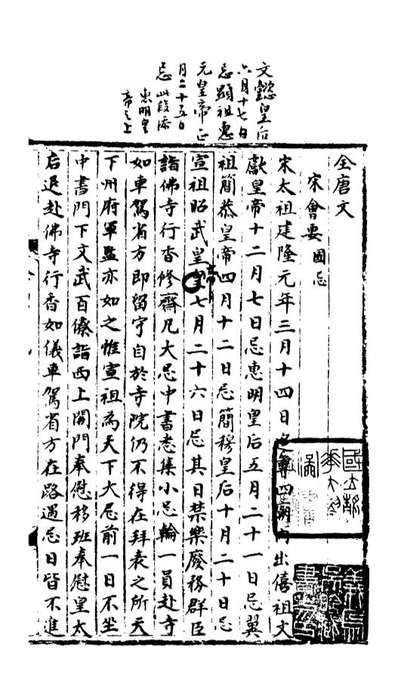 文懿皇后
六月十七日
忌顯祖惠
元皇帝正
月二十五日
忌 此段添
惠明皇
帝之上
全唐文
宋會要 國忌
宋太祖建隆元年三月十四日尊四廟内出僖祖文
獻皇帝十二月七日忌惠明皇后五月二十一日忌翼
祖簡恭皇帝四月十二日忌簡穆皇后十月二十日忌
宣祖昭武皇帝七月二十六日忌其日禁樂廢務群臣
詣佛寺行香修齋凡大忌中書悉集小忌輪一員赴寺
如車駕省方即留守自於寺院仍不得在拜表之所天
下州府軍監亦如之惟宣祖為天下大忌前一日不坐
中書門下文武百僚詣西上閤門奉慰移班奉慰皇太
后退赴佛寺行香如儀車駕省方在路遇忌日皆不進